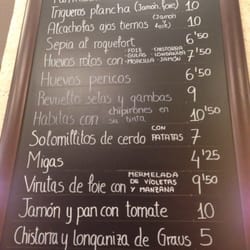 Trigueros plancha (Jamón, foie) 10
Alcachofas ajos tiernos (Jamón foie) 10
Sepia al roquefort 6'50
Huevos rotos con: FOIE - CHISTORRA
GULAS - LONGANIZA
MORCILLA - JAMÓN 7
Huevos pericos 6'50
Revuelto setas y gambas 9
Habitas con chipirones en su tinta 10'50
Solomillitos de cerdo CON PATATAS 7
Migas 4'25
Virutas de foie con MERMELADA DE VIOLETAS Y MANZANA 9'50
Jamón y pan con tomate 10
Chistorra y longaniza de Graus 5